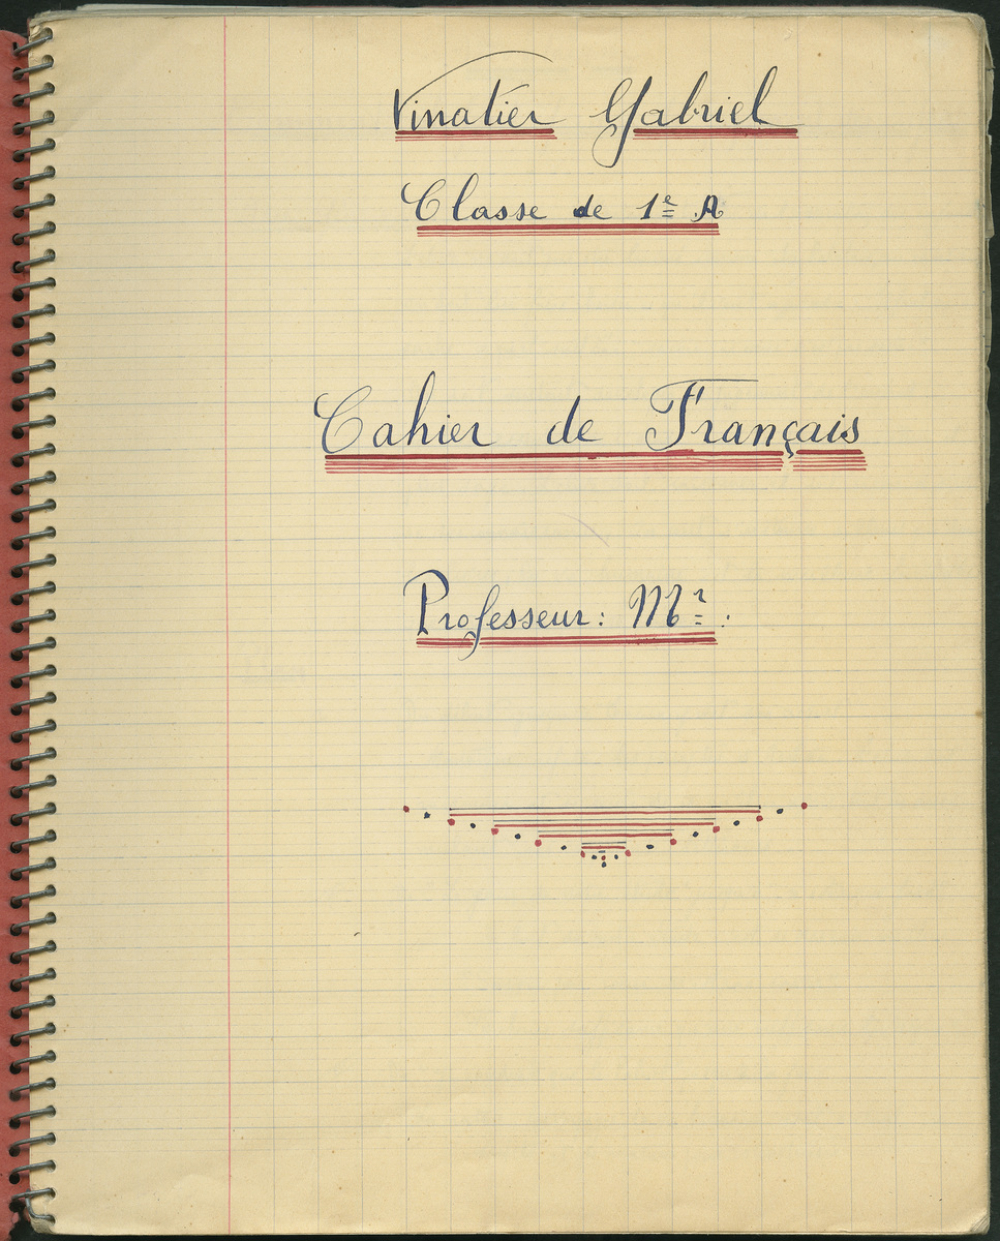 Vinatier Gabriel
Classe de 1re A
Cahier de Français
Professeur: Mr.